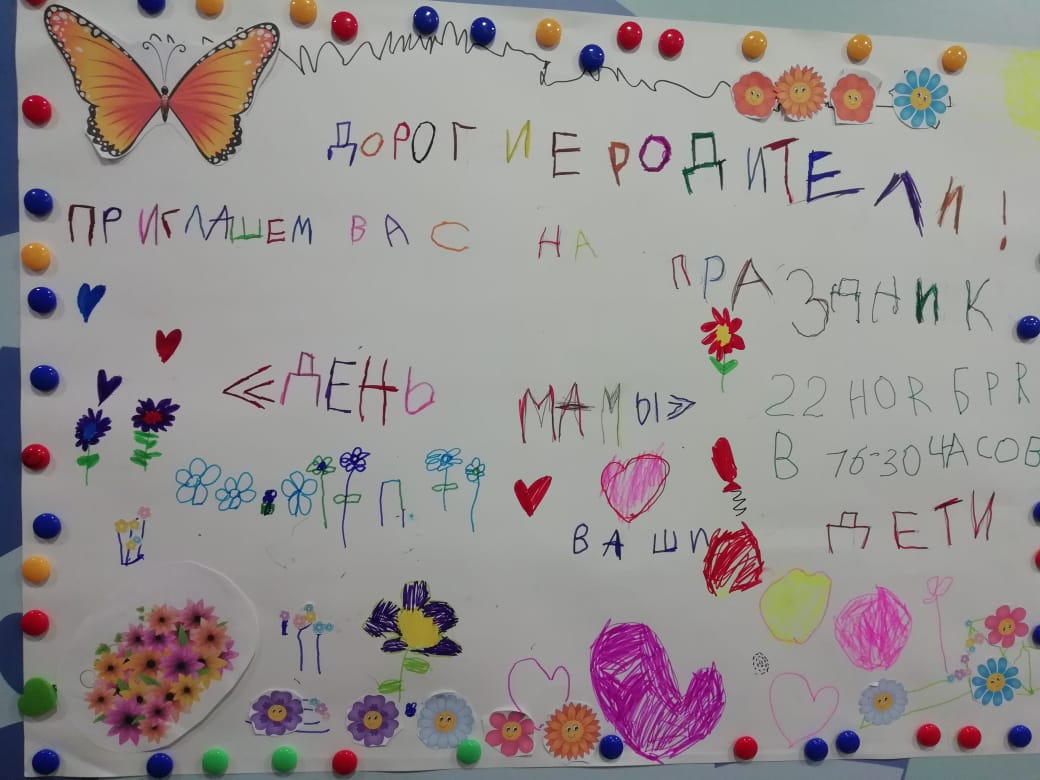 ДОРОГИЕ РОДИТЕЛИ!
ПРИГЛАШЕМ ВАС НА
ПРАЗДНИК
«ДЕНЬ МАМЫ»
22 НОЯБРЯ
В 16-30 ЧАСОВ
ВАШИ ДЕТИ